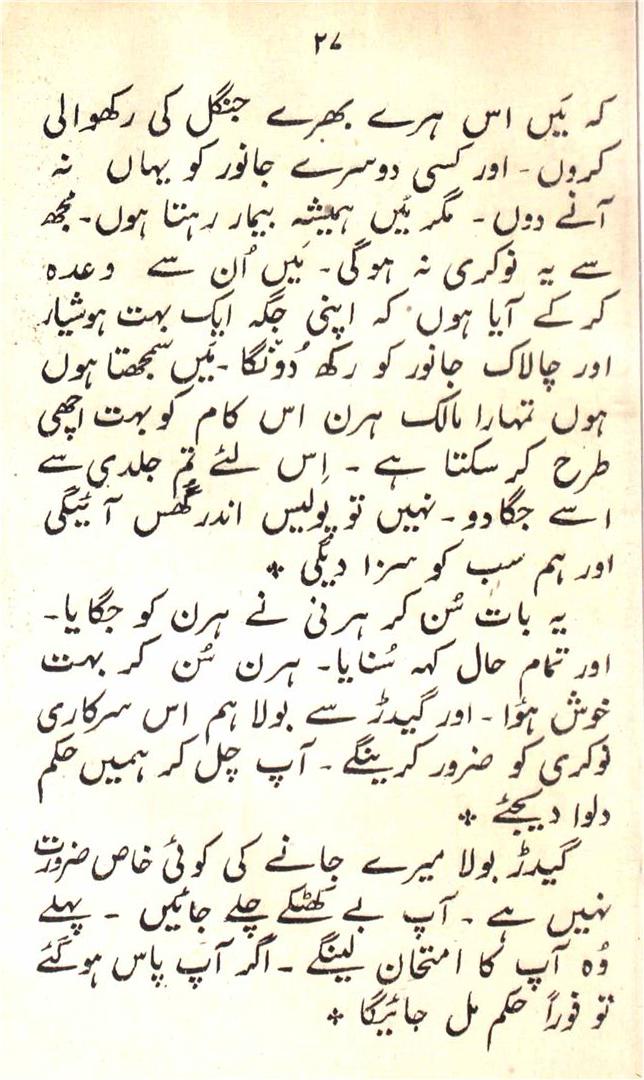 ۲۷
کہ مَیں اس ہرے بھرے جنگل کی رکھوالی
کروں۔ اور کسی دوسرے جانور کو یہاں نہ
آنے دوں۔ مگر مَیں ہمیشہ بیمار رہتا ہوں۔ مجھ
سے یہ نوکری نہ ہوگی۔ مَیں اُن سے وعدہ
کرکے آیا ہوں کہ اپنی جگہ ایک بہت ہوشیار
اور چالاک جانور کو رکھ دُونگا۔ مَیں سمجھتا ہوں
ہوں تمہارا مالک ہرن اس کام کو بہت اچھی
طرح کر سکتا ہے۔ اِس لئے تم جلدی سے
اسے جگا دو۔ نہیں تو پولیس اندر گھُس آئیگی
اور ہم سب کو سزا دیگی ٭
یہ بات سُن کر ہرنی نے ہرن کو جگایا۔
اور تمام حال کہہ سُنایا۔ ہرن سُن کر بہت
خوش ہؤا۔ اور گیدڑ سے بولا ہم اس سرکاری
نوکری کو ضرور کرینگے۔ آپ چل کر ہمیں حکم
دلوا دیجئے ٭
گیدڑ بولا میرے جانے کی کوئی خاص ضرورت
نہیں ہے۔ آپ بے کھٹکے چلے جائیں۔ پہلے
وُہ آپ کا امتحان لینگے۔ اگر آپ پاس ہوگئے
تو فوراً حکم مل جائیگا ٭